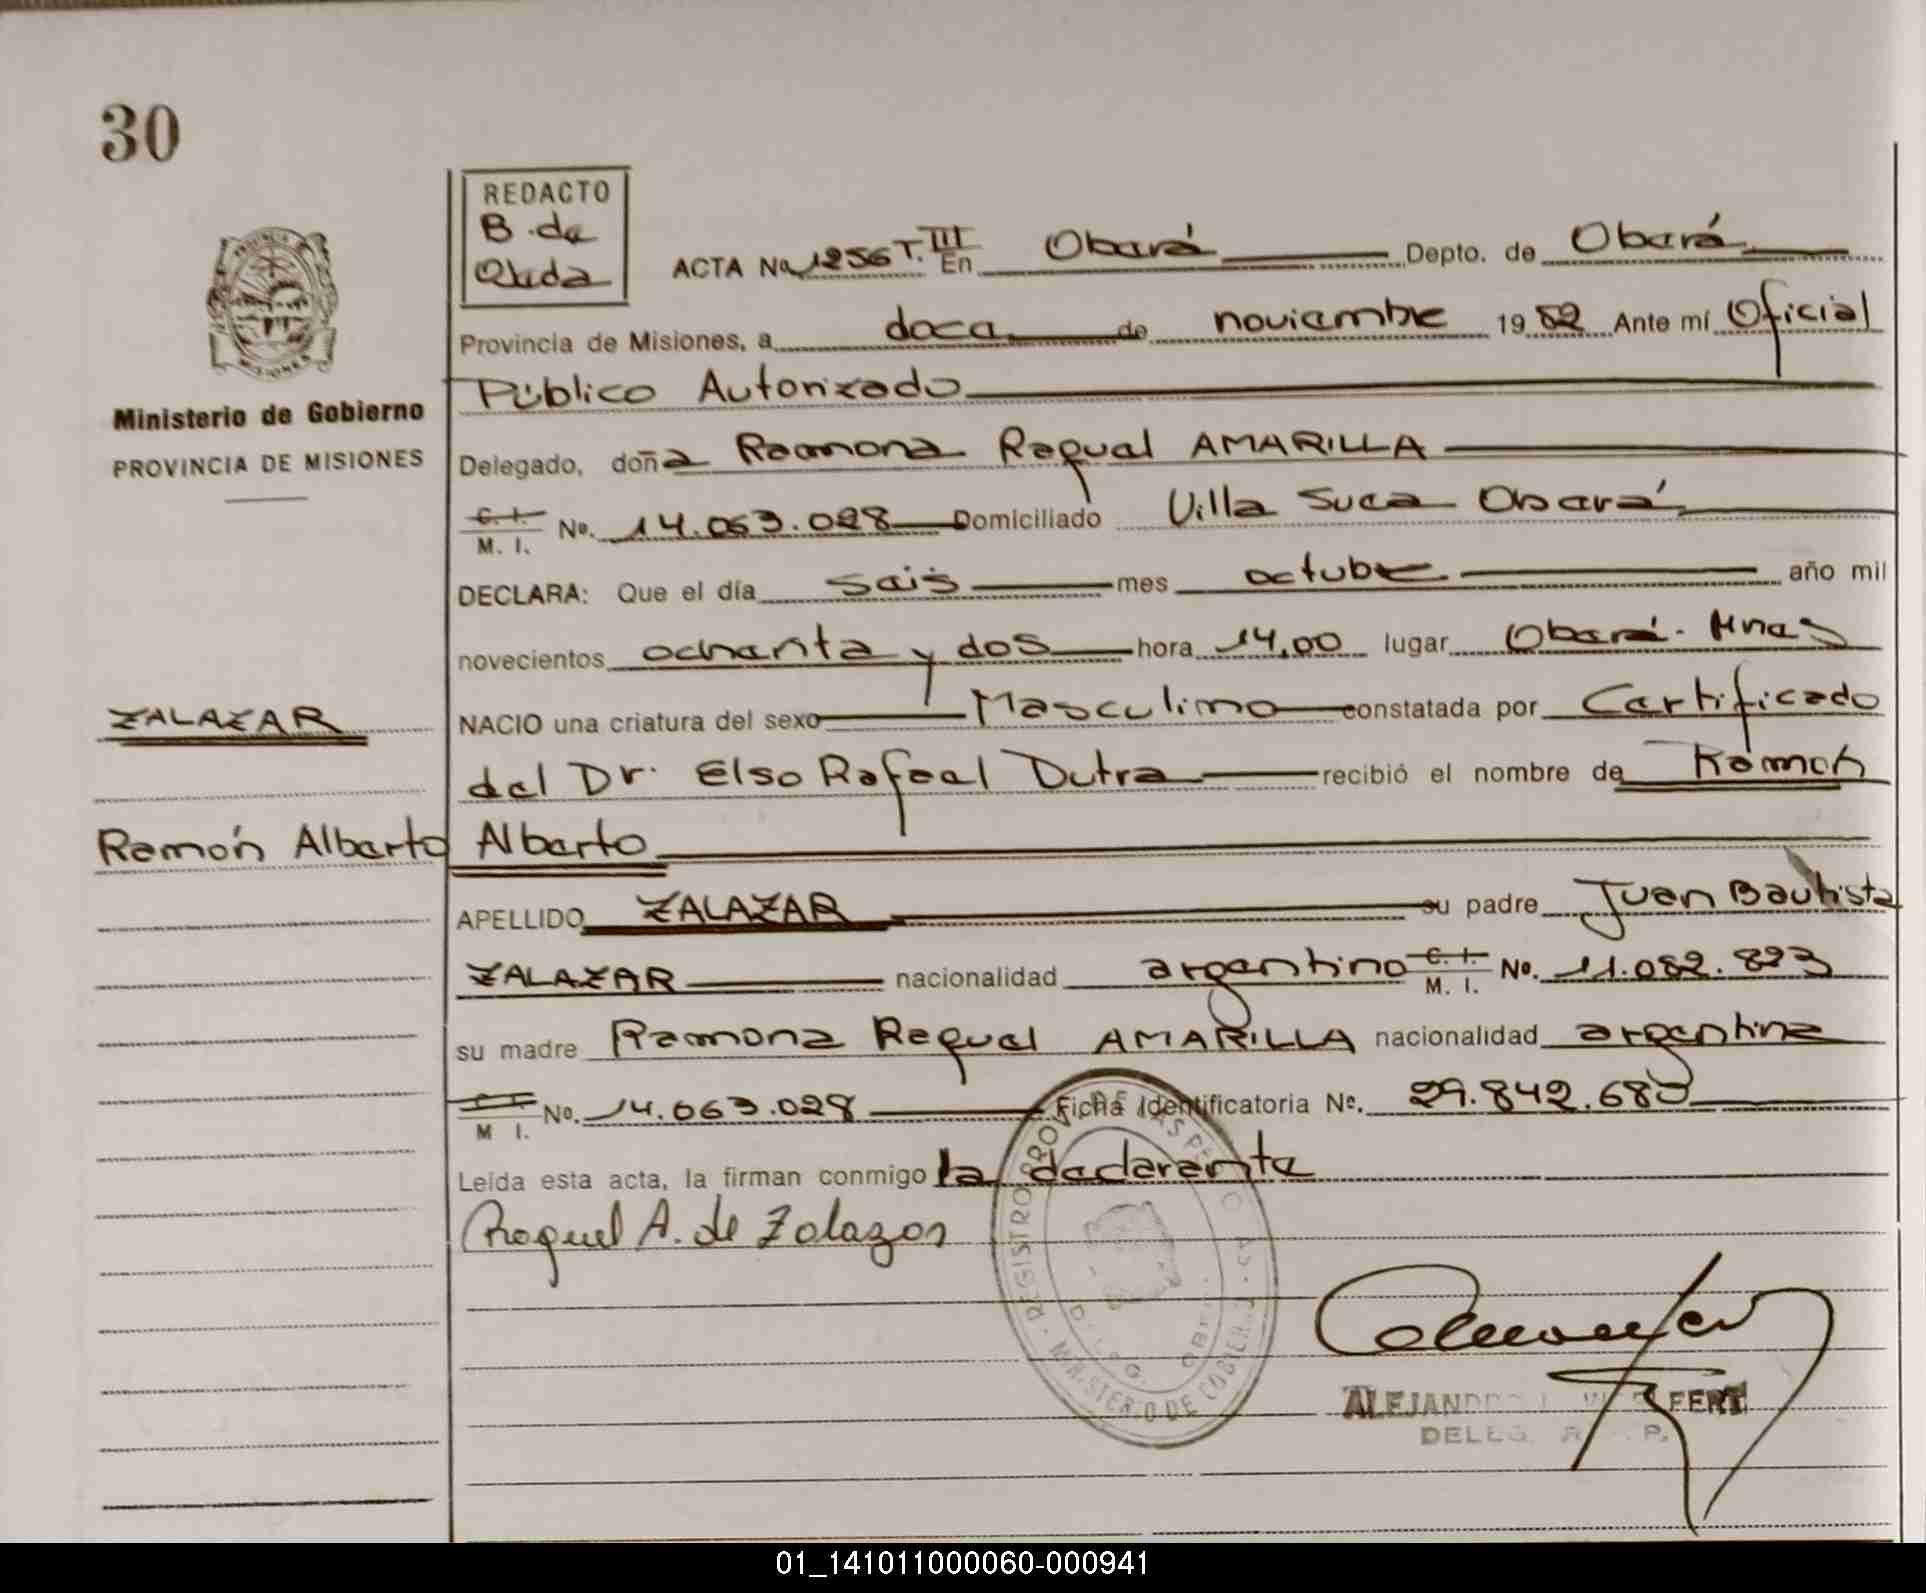 30
REDACTO
B. de
Olida
ACTA No. 1256 T. III En Oberá Depto. de Oberá
Provincia de Misiones, a doce de noviembre 1982 Ante mí Oficial
Público Autorizado
Ministerio de Gobierno
PROVINCIA DE MISIONES
Delegado, doña Ramona Raquel AMARILLA
C. I. M. I. No. 14.063.028 Domiciliado Villa Suca Oberá
DECLARA: Que el día seis mes octubre año mil
novecientos ochenta y dos hora 14,00 lugar Oberá. Mnes
ZALAZAR
NACIO una criatura del sexo Masculino constatada por Certificado
del Dr. Elso Rafael Dutra recibió el nombre de Ramón
Ramón Alberto
Alberto
APELLIDO ZALAZAR su padre Juan Bautista
ZALAZAR nacionalidad argentino C. I. M. I. No. 11.082.823
su madre Ramona Raquel AMARILLA nacionalidad argentina
C. I. M I. No. 14.063.028 Ficha Identificatoria No. 29.842.683
Leída esta acta, la firman conmigo la declarante
Raquel A. de Zalazar
REGISTRO PROV. DE LAS PE
MINISTERIO DE GOBIER
ALEJAN FERT
DELEG. R P.
01_141011000060-000941